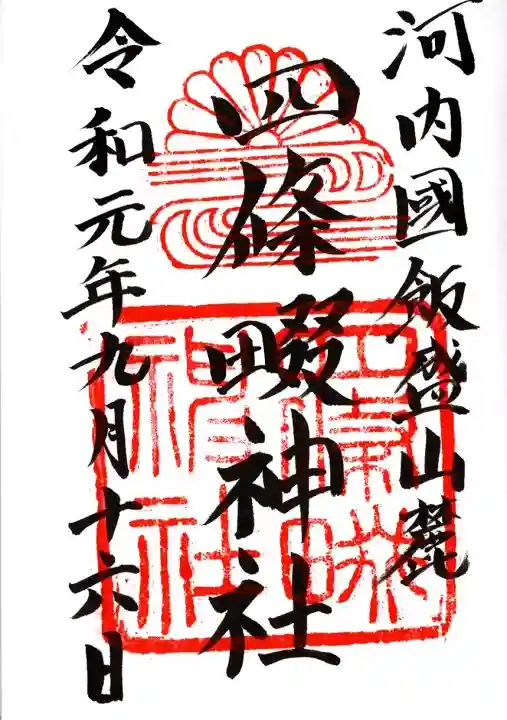 河内國飯盛山麓
四條畷神社
令和元年九月十六日
四條畷
神社